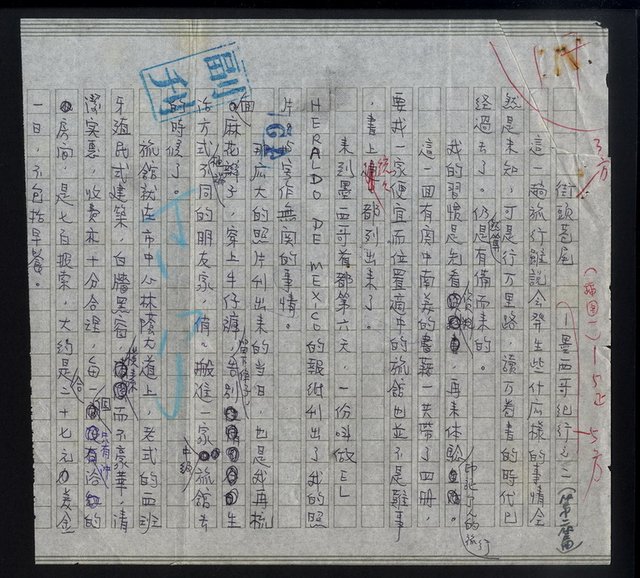 街頭巷尾 （墨西哥紀行之二）（第二篇）
這一趟旅行雖說會發生些什麼樣的事情全
然是未知，可是行萬里路，讀萬卷書的時代已
經過去了。仍然算是有備而來的。
我的習慣是先看資料，再來體驗印證了的旅行
這一回有關中南美的書籍一共帶了四冊，
要找一家便宜而位置適中的旅館也並不是難事
，書上統統都列出來了。
來到墨西哥首都第六天，一份叫做EL
HERALDO DE MEXICO的報紙刊出了我的照
片與寫作無關的事情。
那麼大的照片刊出來的當日，也是我再梳
個麻花辮子，穿上牛仔褲，告別生
活方式不同的朋友家，悄悄搬進一家中級旅館去
的時候了。
旅館就在市中心林蔭大道上，老式的西班
牙殖民式建築，白牆黑窗，樸素而不豪華，清
潔實惠，收費亦十分合理，每一個只有沖浴的
房間，是七百披索，大約是合二十七元美金
一日，不包括早餐。
副刊
（插圖一）